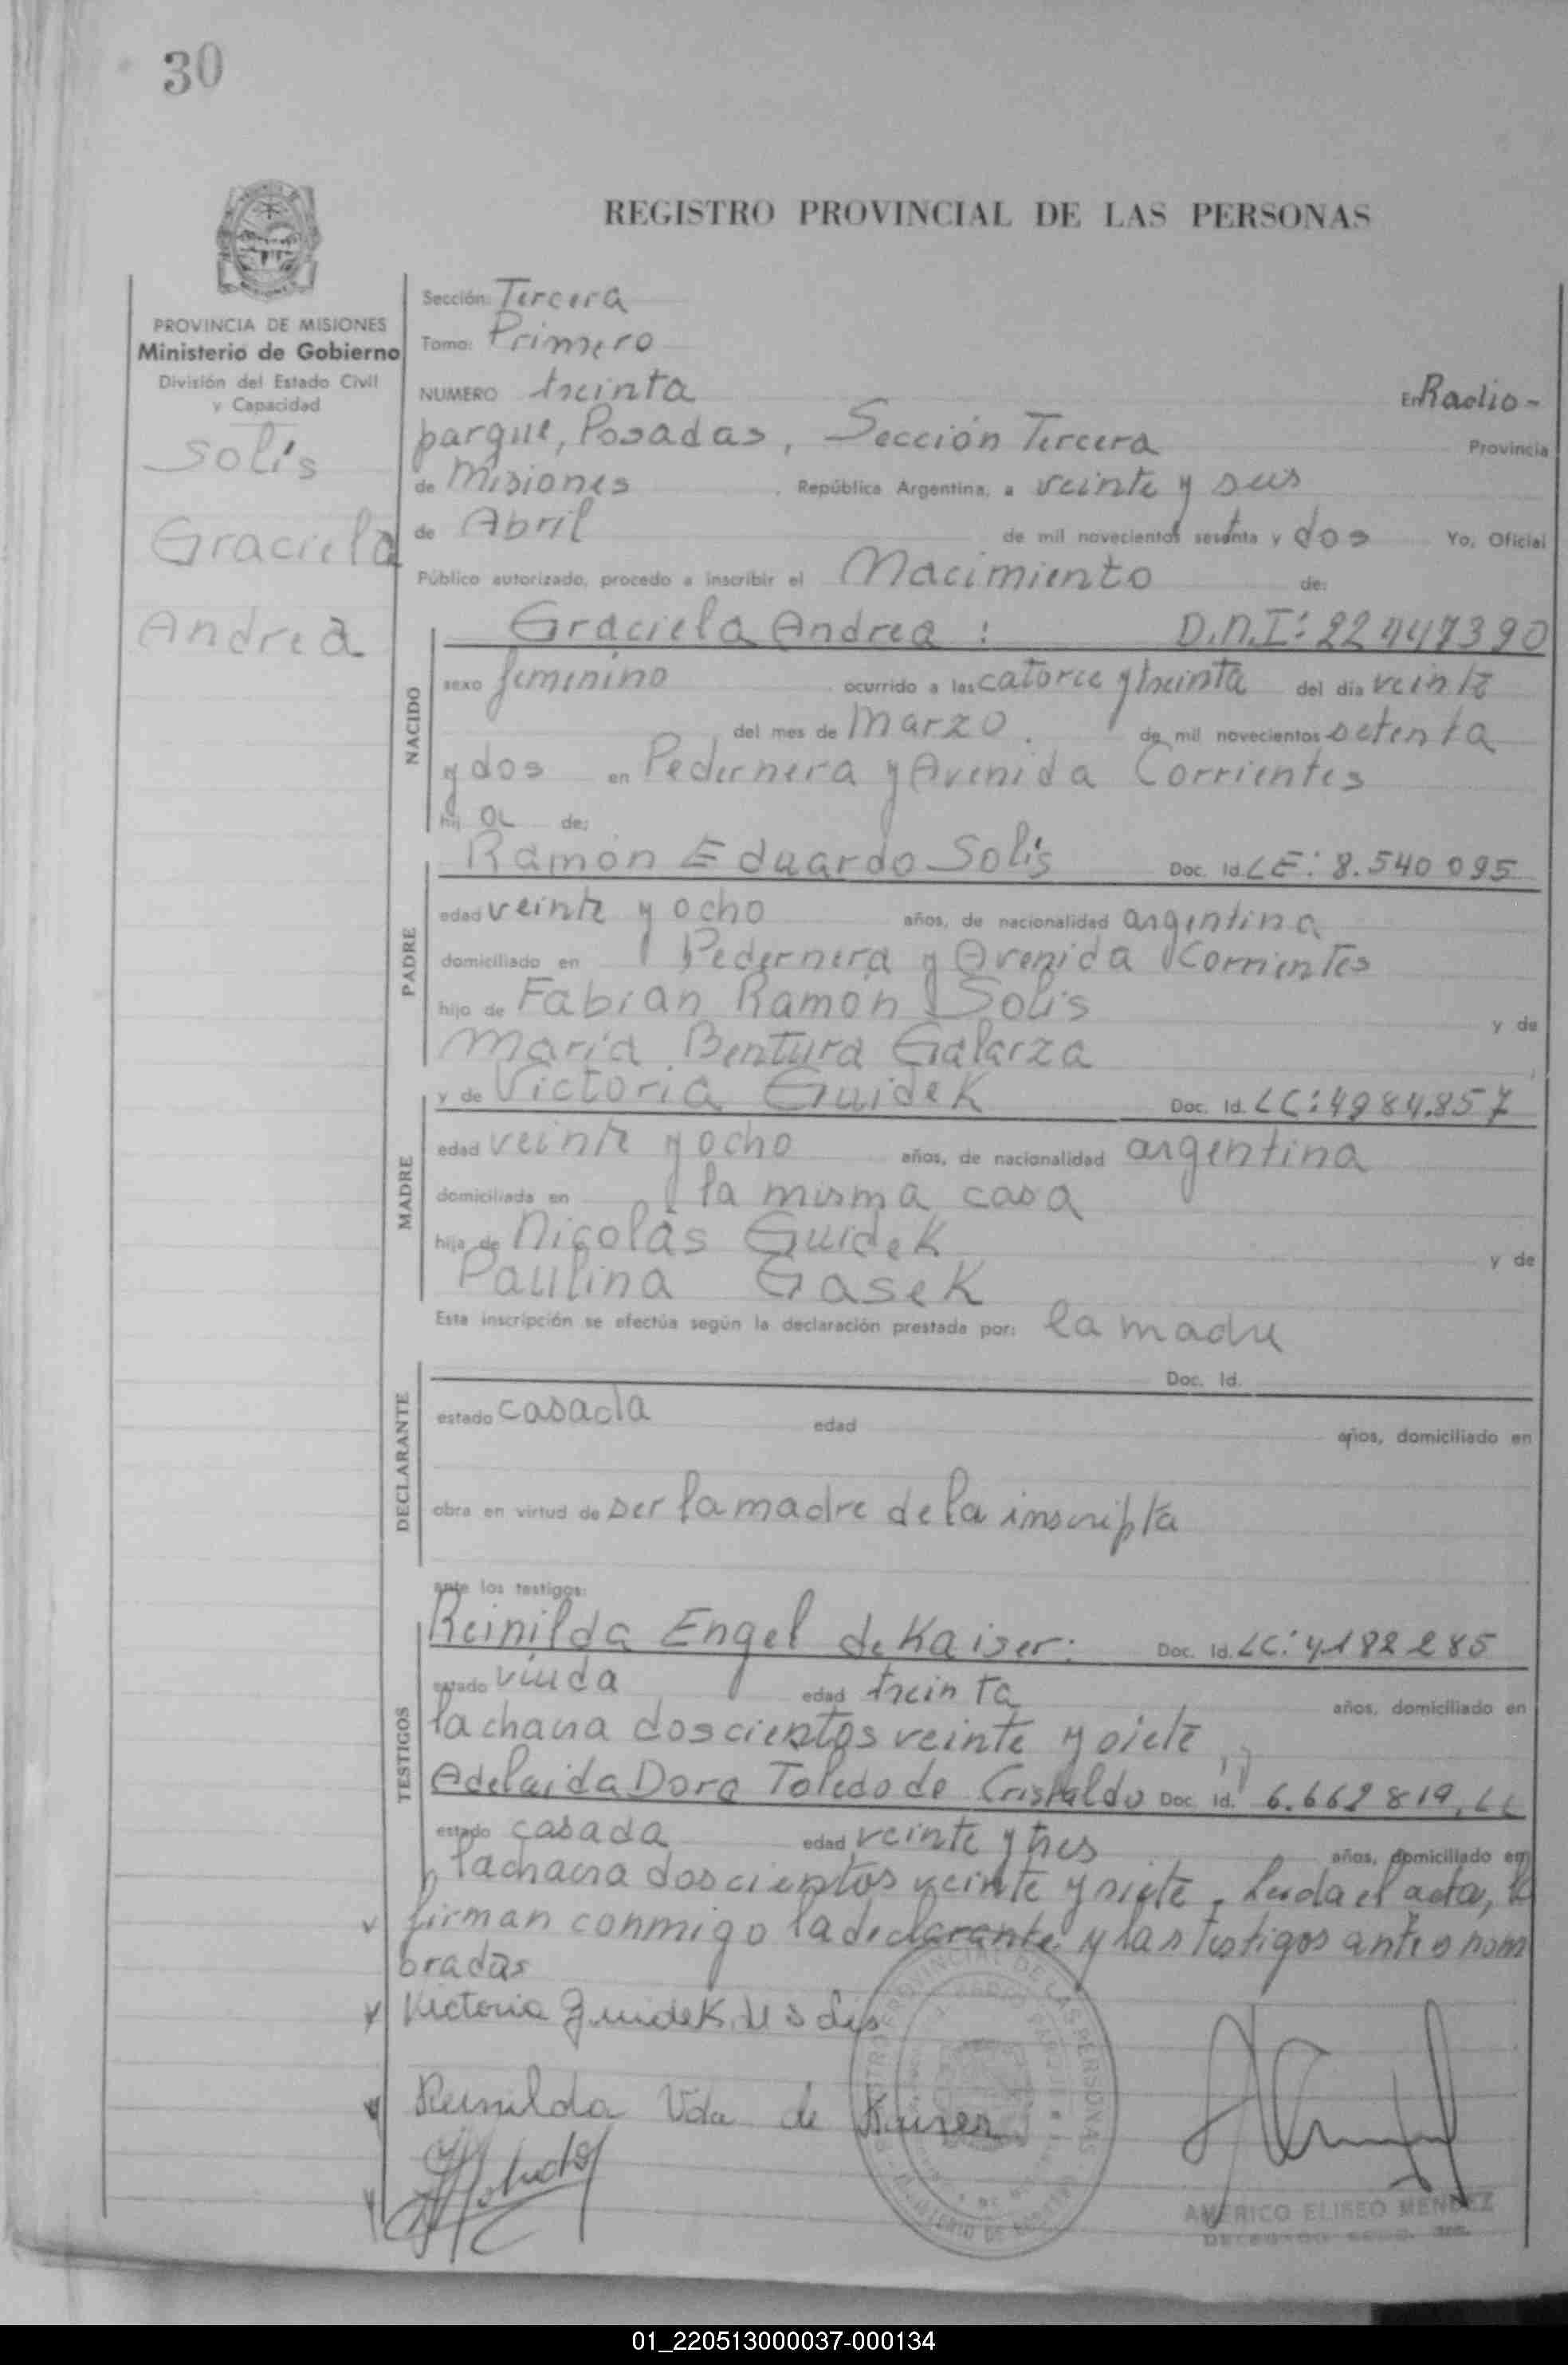 30
REGISTRO PROVINCIAL DE LAS PERSONAS
PROVINCIA DE MISIONES
Ministerio de Gobierno
División del Estado Civil
y Capacidad
Solís
Graciela
Andrea
Sección: Tercera
Tomo: Primero
NUMERO treinta En Radio-
parque, Posadas, Sección Tercera Provincia
de Misiones República Argentina, a veinte y seis
de Abril de mil novecientos sesenta y dos Yo, Oficial
Público autorizado, procedo a inscribir el Nacimiento de:
NACIDO
Graciela Andrea : D.N.I: 22447390
sexo femenino ocurrido a las catorce y treinta del día veinte
del mes de Marzo. de mil novecientos setenta
y dos en Pedernera y Avenida Corrientes
hij a de:
PADRE
Ramón Eduardo Solís Doc. Id. LE: 8.540 095
edad veinte y ocho años, de nacionalidad argentina
domiciliado en Pedernera y Avenida Corrientes
hijo de Fabián Ramón Solís y de
María Bentura Galarza
MADRE
y de Victoria Guidek Doc. Id. LC: 4984.857
edad veinte y ocho años, de nacionalidad argentina
domiciliada en la misma casa
hija de Nicolás Guidek y de
Paulina Gasek
Esta inscripción se efectúa según la declaración prestada por: la madre
DECLARANTE
Doc. Id.
estado casada edad años, domiciliado en
obra en virtud de ser la madre de la inscripta
ante los testigos:
TESTIGOS
Reinilda Engel de Kaiser: Doc. Id. LC: 4182285
estado viuda edad treinta años, domiciliado en
la chacra doscientos veinte y siete, y
Adelaida Dora Toledo de Cristaldo Doc. Id. 6.662819, LC
estado casada edad veinte y tres años, domiciliado en
la chacra doscientos veinte y siete. Leida el acta, la
firman conmigo la declarante y las testigos antes nom
bradas
Victoria Guidek de Solis
Reinilda Vda de Kaiser
REGISTRO PROVINCIAL DE LAS PERSONAS
RADIO PARQUE
MINISTERIO DE GOBIERNO
AMERICO ELISEO MENDEZ
01_220513000037-000134